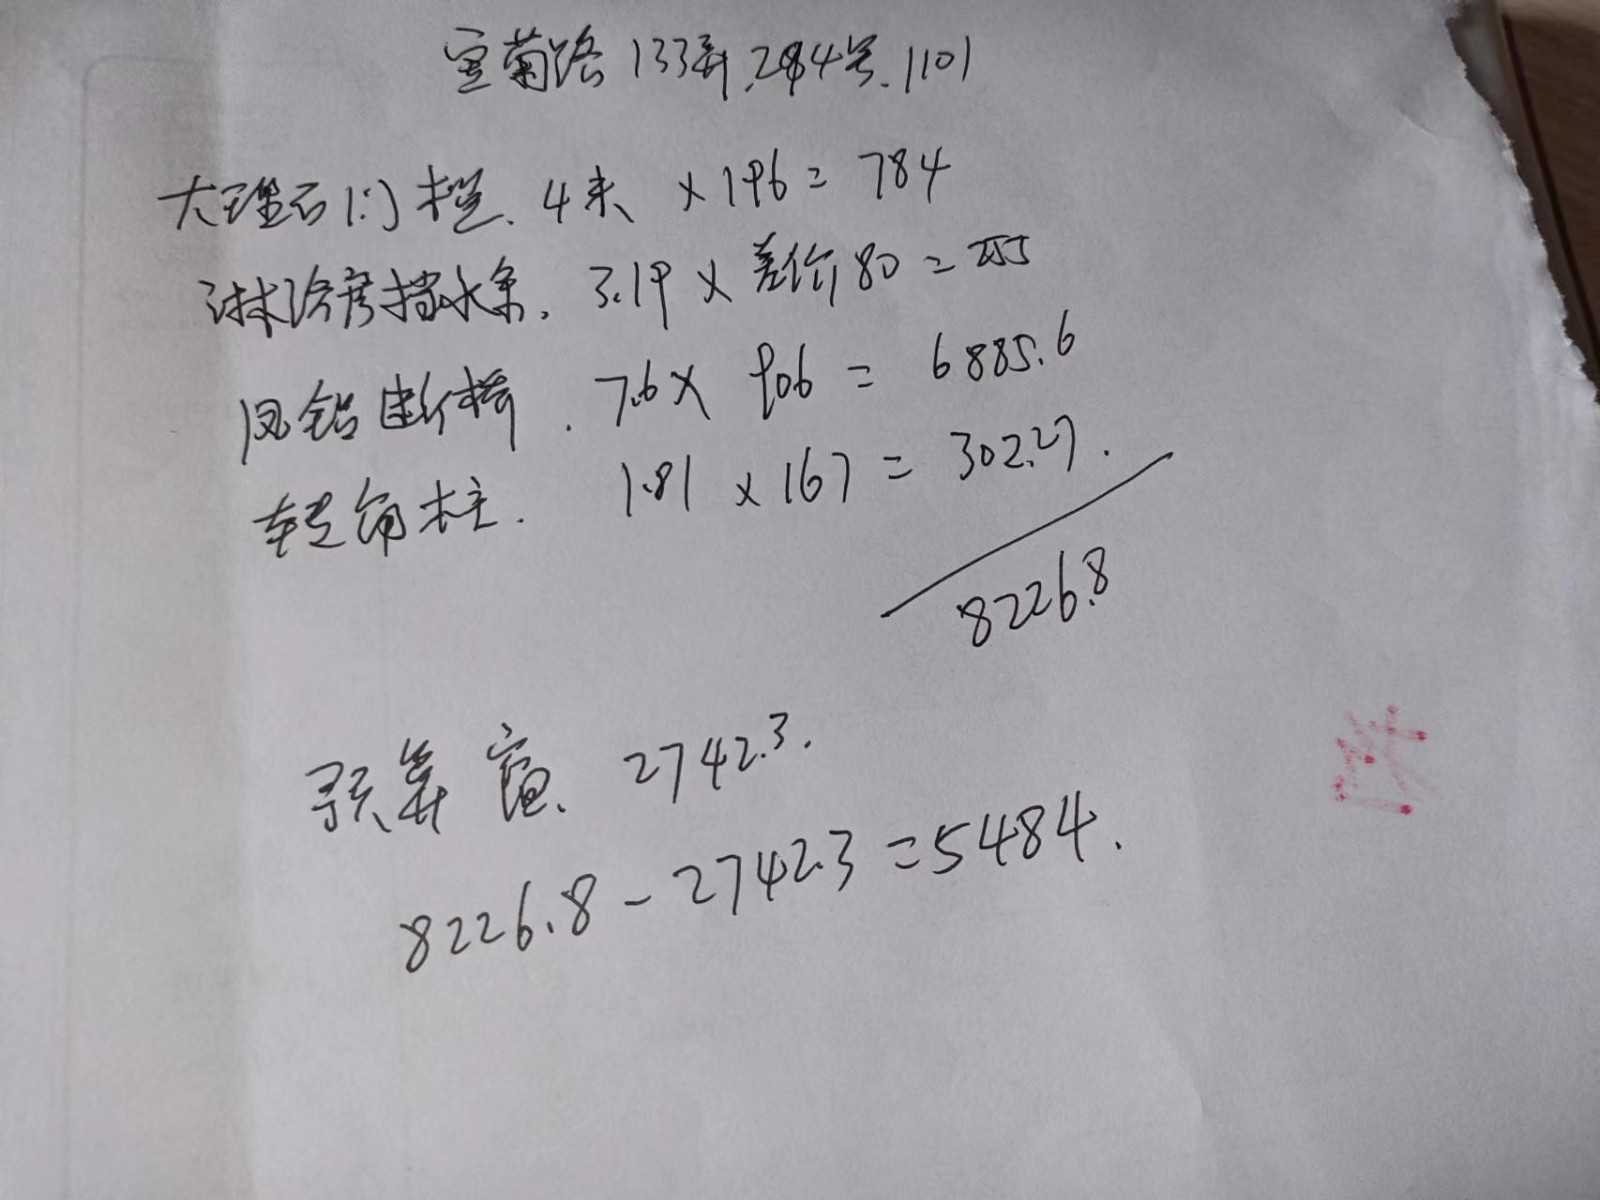 宝菊路133弄.284号.1101
大理石门槛. 4米 ×196=784
淋浴房挡水条. 3.19×差价80=255
凤铝断桥. 7.6×906=6885.6
转角柱. 1.81×167=302.27.
8226.8
预算窗. 2742.3.
8226.8-2742.3=5484.